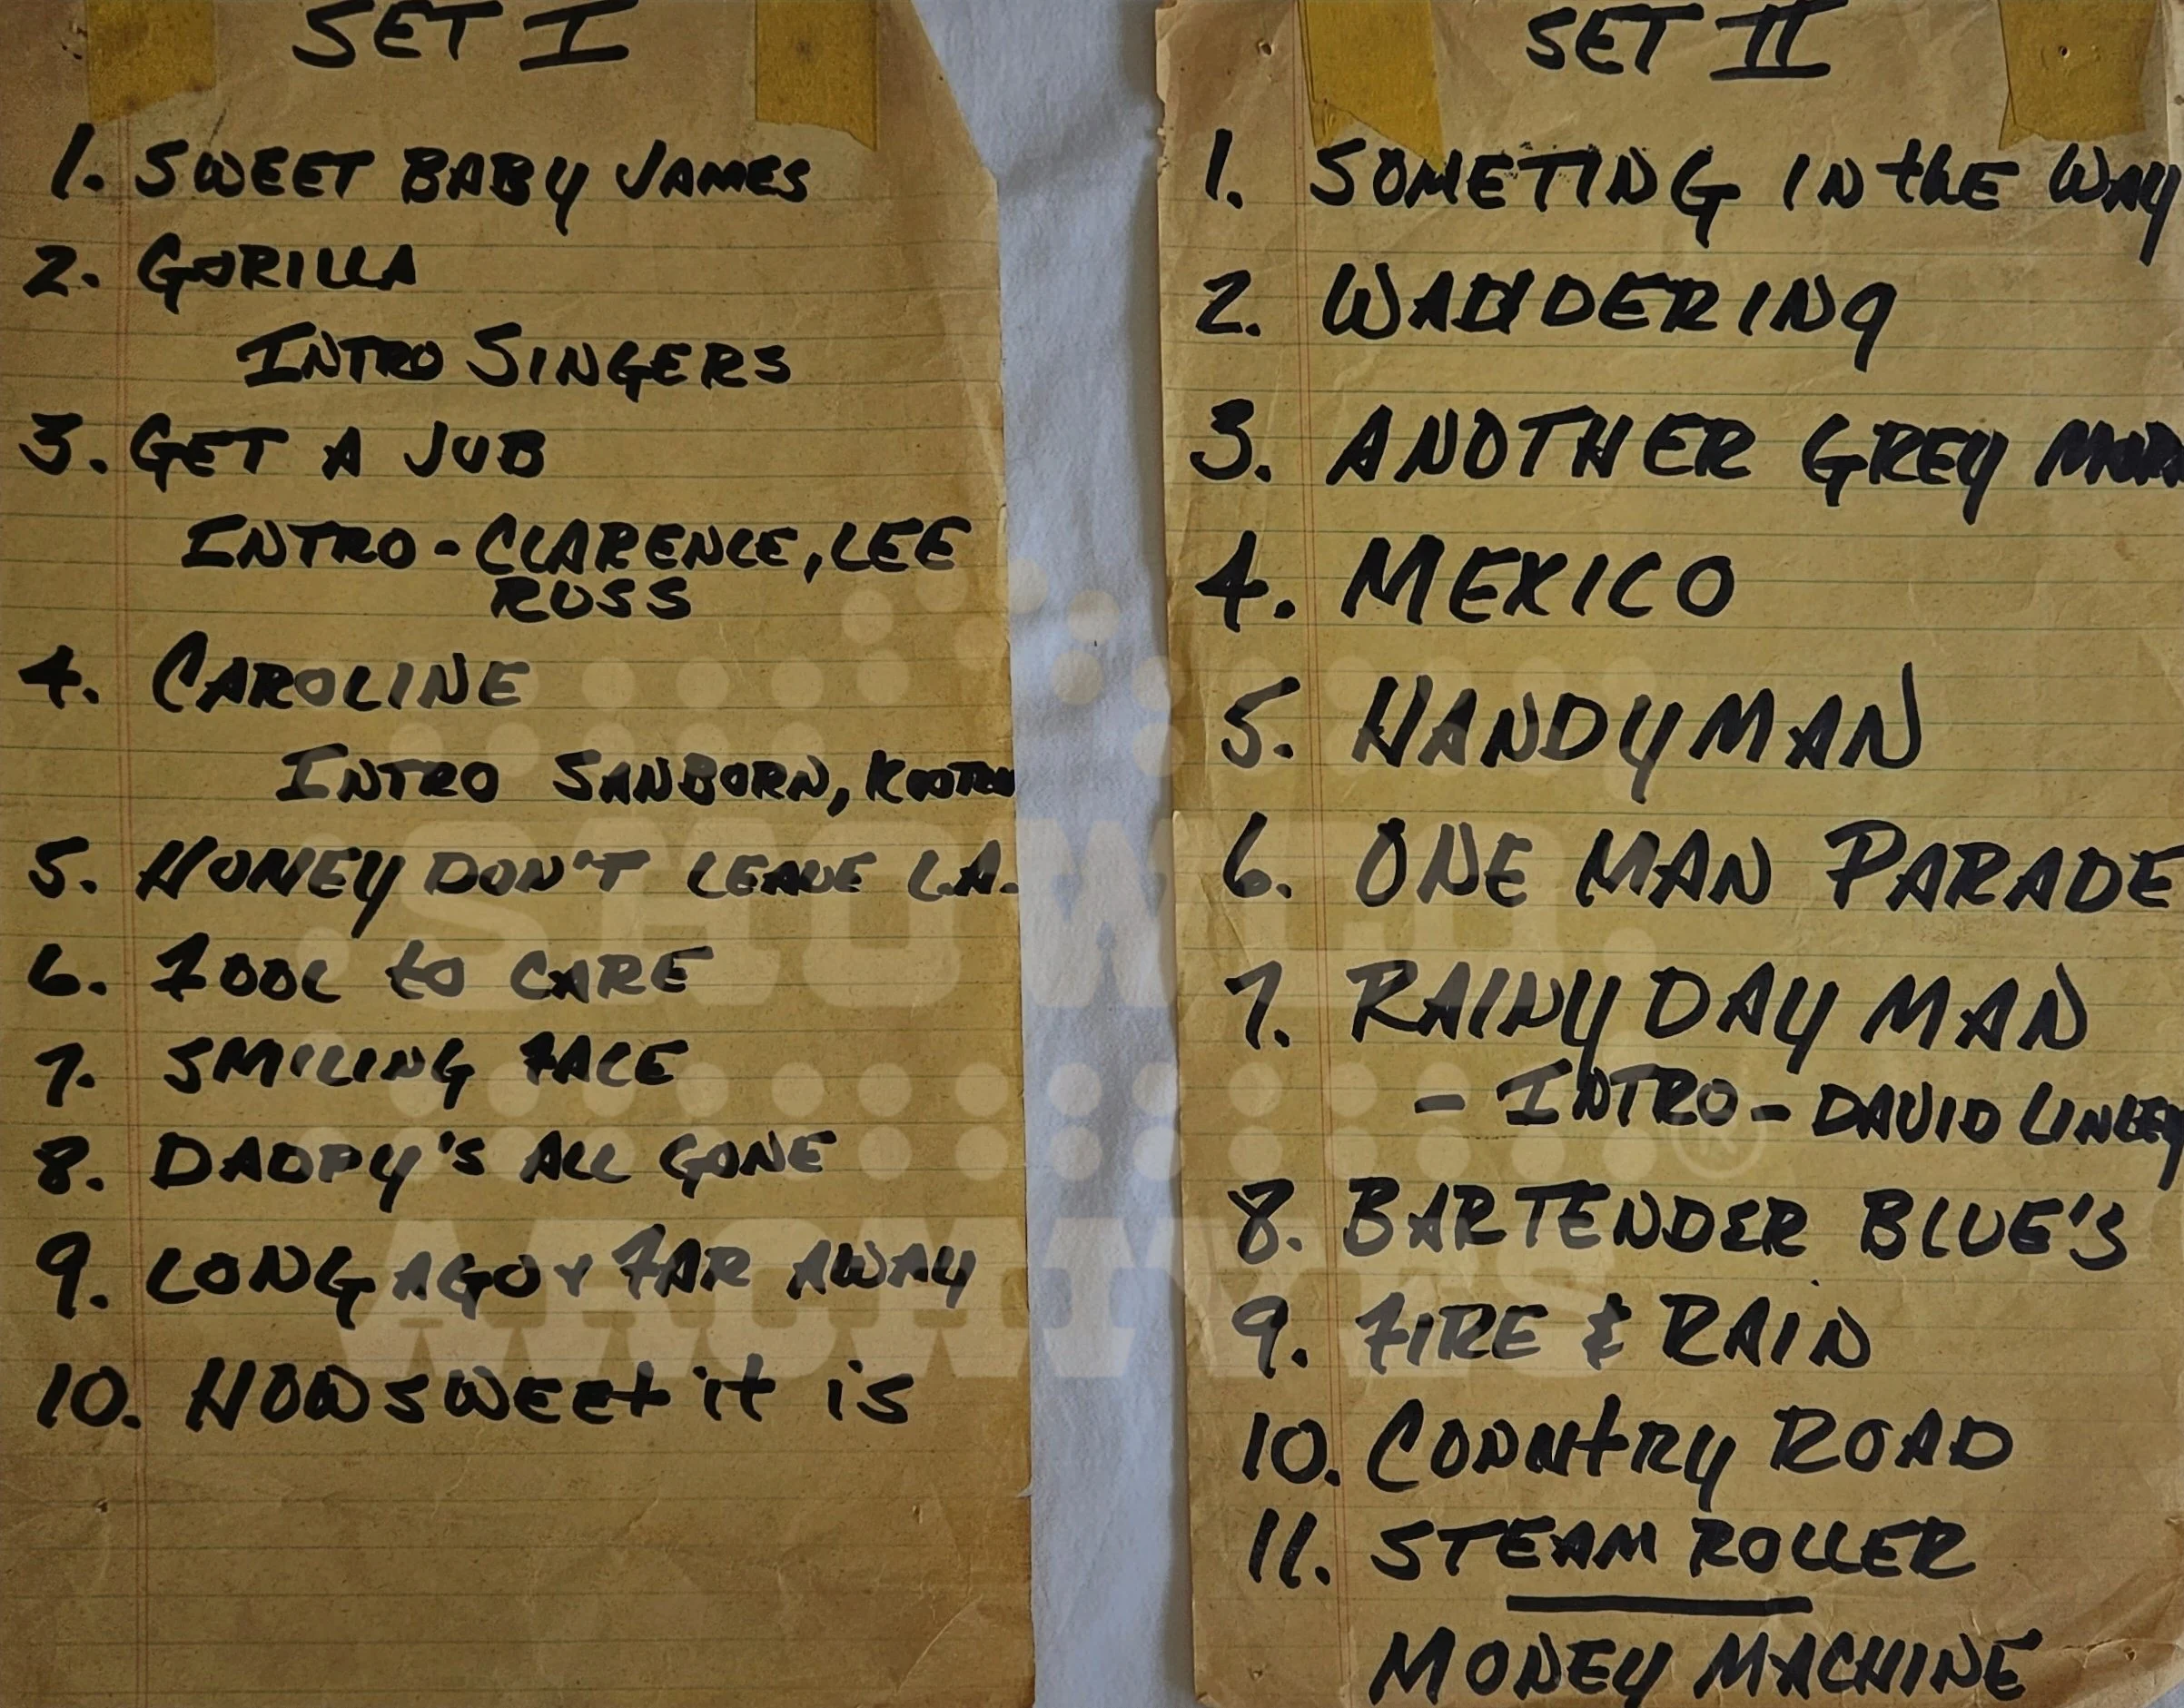 SET I
1. SWEET BABY JAMES
2. GORILLA
INTRO SINGERS
3. GET A JOB
INTRO - CLARENCE, LEE
RUSS
4. CAROLINE
INTRO SANBORN,
5. HONEY DON'T LEAVE L.A.
6. FOOL to CARE
7. SMILING FACE
8. DADDY'S ALL GONE
9. LONG AGO & FAR AWAY
10. HOW SWEEt it is
SET II
1. SOMETING IN thE WAY
2. WANDERING
3. ANOTHER GREY MORN
4. MEXICO
5. HANDYMAN
6. ONE MAN PARADE
7. RAINY DAY MAN
- INTRO - DAVID LINLEY
8. BARTENDER BLUE'S
9. FIRE & RAIN
10. COUNtRY ROAD
11. STEAM ROLLER
MONEY MACHINE
SHOWCO
®
ARCHIVES